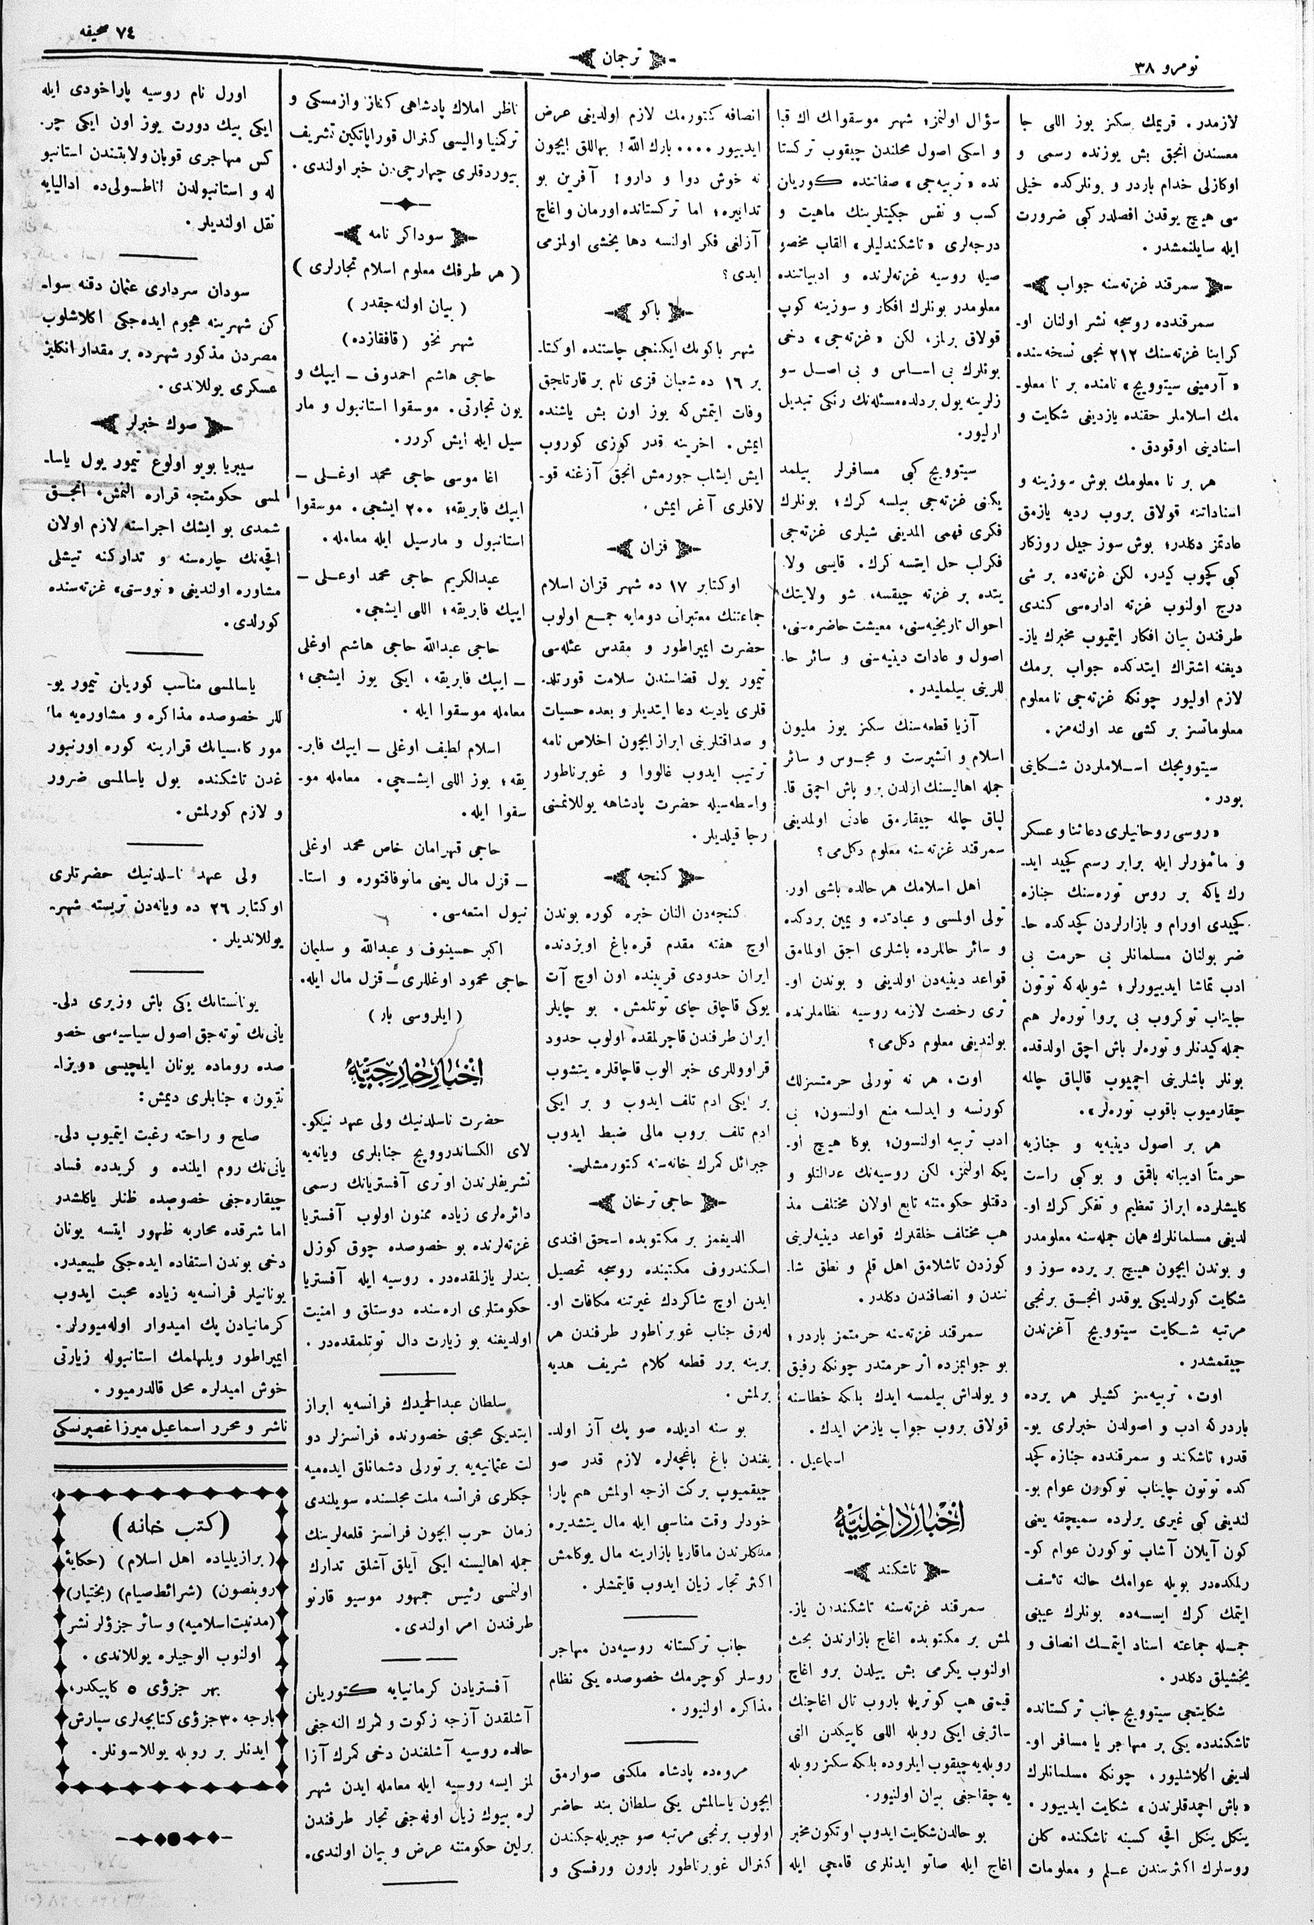 نومرو ٣٨
ترجمان
٧٤ صحيفه
لازمدر. قريمك سكز يوز اللى جا
معسندن انجق بش يوزنده رسمى و
اوكازلى خدام باردر و بونلركده خيلى
سى هيچ يوقدن افضلدر كبى ضرورت
ايله سايلنمشدر.
سمرقند غزته‌سنه جواب
سمرقندده روسجه نشر اولنان او-
كراينا غزته‌سنك ٢١٢ نجى نسخه‌سنده
«آرمينى سيتوويچ» نامنده بر نا معلو-
مك اسلاملر حقنده يازديغى شكايت و
اسنادينى اوقودق.
هر بر نا معلومك بوش سوزينه و
اسناداتنه قولاق بروب رديه يازمق
عادتمز دكلدر؛ بوش سوز جيل روزكار
كبى كچوب كيدر، لكن غزته‌ده بر شى
درج اولنوب غزته اداره‌سى كندى
طرفندن بيان افكار ايتميوب مخبرك ياز-
ديغنه اشتراك ايتدكده جواب برمك
لازم اوليور چونكه غزته‌جى نا معلوم
معلوماتسز بر كشى عد اولنه‌مز.
سيتوويچك اسلاملردن شكايتى
بودر.
«روسى روحانيلرى دعا ثنا و عسكر
و مأمورلر ايله برابر رسم كچيد ايد-
رك ياكه بر روس توره‌سنك جنازه
كچيدى اورام و بازارلردن كچدكده حا-
ضر بولنان مسلمانلر بى حرمت بى
ادب تماشا ايدييورلر؛ شويله‌كه توتون
چايناب توكروب بى پروا توره‌لر هم
جمله كيدنلر و توره‌لر باش اچق اولدقده
بونلر باشلرينى اچميوب قالپاق چالمه
چقارميوب باقوب توره‌لر».
هر بر اصول دينيه‌يه و جنازيه
حرمتاً اديبانه باقمق و بوكبى راست
كايشلرده ابراز تعظيم و تفكر كرك او-
لديغى مسلمانلرك همان جمله‌سنه معلومدر
و بوندن ايچون هيچ بر يرده سوز و
شكايت كورلديكى يوقدر انجق برنجى
مرتبه شكايت سيتوويچ آغزندن
چيقمشدر.
اوت، تربيه‌سز كشيلر هر يرده
باردر كه ادب و اصولدن خبرلرى يو-
قدر؛ تاشكند و سمرقندده جنازه كچد
كده توتون چايناب توكورن عوام بو-
لنديغى كبى غيرى يرلرده سميچقه يعنى
كون آيلان آشاب توكورن عوام كو-
رلمكده‌در بويله عوامك حالنه تاسف
ايتمك كرك ايسه‌ده بونلرك عيبنى
جمله جماعته اسناد ايتمك انصاف و
يخشيلق دكلدر.
شكايتجى سيتوويچ جانب تركستانده
تاشكندده يكى بر مهاجر يا مسافر او-
لديغى اكلاشليور، چونكه مسلمانلرك
«باش اچمدقلرندن» شكايت ايدييور.
ينكل ينكل اقچه كسبنه تاشكنده كلن
روسلرك اكثرسندن علم و معلومات
سؤال اولنمز؛ شهر موسقوانك اك قبا
و اسكى اصول محلندن چيقوب تركستا
نده «تربيه‌جى» صفاتنده كوريان
كسب و نفس جكيتلرينك ماهيت و
درجه‌لرى «تاشكندليلر» القاب مخصو
صيله روسيه غزته‌لرنده و ادبياتنده
معلومدر بونلرك افكار و سوزينه كوپ
قولاق برلمز. لكن «غزته‌جى» دخى
بونلرك بى اساس و بى اصل سو
زلرينه يول بردلده مسئله‌نك رنكى تبديل
اوليور.
سيتوويچ كبى مسافرلر بيلمد
يكنى غزته‌جى بيلسه كرك؛ بونلرك
فكرى فهمى المديغى شيلرى غزته‌جى
فكرلب حل ايتسه كرك. قايسى ولا-
يتده بر غزته چيقسه، شو ولايتك
احوال تاريخيه‌سنى، معيشت حاضره‌سنى،
اصول و عادات دينيه‌سنى و سائر حا-
للرينى بيلمليدر.
آزيا قطعه‌سنك سكز يوز مليون
اسلام و اتشپرست و مجوس و سائر
جمله اهاليسنك ازلدن برو باش اچمق قا-
لپاق چالمه چيقارمق عادتى اولمديغى
سمرقند غزته‌سنه معلوم دكل‌مى؟
اهل اسلامك هر حالده باشى اور-
تولى اولمسى و عبادتده و يمين بردكده
و سائر حالمرده باشلرى اچق اولمامق
قواعد دينيه‌دن اولديغى و بوندن او-
ترى رخصت لازمه روسيه نظاملرنده
بولنديغى معلوم دكل‌مى؟
اوت، هر نه تورلى حرمتسزلك
كورنسه و ايدلسه منع اولنسون؛ بى
ادب تربيه اولنسون؛ بوكا هيچ او-
يكه اولنمز، لكن روسيه‌نك عدالتلو و
دقتلو حكومتنه تابع اولان مختلف مذ
هب مختلف خلقلرك قواعد دينيه‌لرينى
كوزدن تاشلامق اهل قلم و نطق شا-
نندن و انصافندن دكلدر.
سمرقند غزته‌سنه حرمتمز باردر؛
بو جوابمزده اثر حرمتدر چونكه رفيق
و يولداش بيلمسه ايدك بلكه خطاسنه
قولاق بروب جواب يازمز ايدك.
اسماعيل.
اخبار داخليه
تاشكند
سمرقند غزته‌سنه تاشكنددن ياز-
لمش بر مكتوبده اغاج بازارندن بحث
اولنوب يكرمى بش ييلدن برو اغاچ
قيمتى هپ كوتريله باروب تال اغاچنك
سائرينى ايكى روبله اللى كاپيكدن التى
روبله‌يه چيقوب ايلروده بلكه سكز روبله
يه چقاجغى بيان اولنيور.
بو حالدن شكايت ايدوب اوتكون مخبر
اغاج ايله صاتو ايدنلرى قامچى ايله
انصافه كتورمك لازم اولديغى عرض
ايدييور.... بارك الله! بهاللق ايچون
نه خوش دوا و دارو! آفرين بو
تدابيره؛ اما تركستانده اورمان و اغاچ
آزلغى فكر اولنسه دها يخشى اولمزمى
ايدى؟
باكو
شهر باكونك ايكنجى چاستنده اوكتا-
بر ١٦ ده شعبان قزى نام بر قارتلجق
وفات ايتمش كه يوز اون بش ياشنده
ايمش. اخرينه قدر كوزى كوروب
ايش ايشلب جورمش انجق آزغنه قو-
لاقلرى آغر ايمش.
قزان
اوكتابر ١٧ ده شهر قزان اسلام
جماعتنك معتبرانى دومايه جمع اولوب
حضرت ايمپراطور و مقدس عئله‌سى
تيمور يول قضاسندن سلامت قورتلد-
قلرى يادينه دعا ايتديلر و بعده حسيات
و صداقتلرينى ابراز ايچون اخلاص نامه
ترتيب ايدوب غالووا و غوبرناطور
واسطه‌سيله حضرت پادشاهه يوللانمنى
رجا قيلديلر.
كنجه
كنجه‌دن النان خبره كوره بوندن
اوچ هفته مقدم قره‌باغ اويزدنده
ايران حدودى قربنده اون اوچ آت
يوكى قاچاق چاى توتلمش. بو چايلر
ايران طرفندن قاچرلمقده اولوب حدود
قراووللرى خبر الوب قاچاقلره يتشوب
بر ايكى ادم تلف ايدوب و بر ايكى
ادم تلف بروب مالى ضبط ايدوب
جبرائل كمرك خانه‌سنه كتورمشلر.
حاجى ترخان
الديغمز بر مكتوبده اسحق افندى
اسكندروف مكتبنده روسجه تحصيل
ايدن اوچ شاكردك غيرتنه مكافات او-
له‌رق جناب غوبرناطور طرفندن هر
برينه برر قطعه كلام شريف هديه
برلمش.
بو سنه اديلده صو پك آز اولد-
يغندن باغ باغچه‌لره لازم قدر صو
چيقميوب بركت ازجه اولمش هم پارا
خودلر وقت مناسبى ايله مال يتشديره
مدكلرندن ماقاريا بازارينه مال يوكامش
اكثر تجار زيان ايدوب قايتمشلر.
جانب تركستانه روسيه‌دن مهاجر
روسلر كوچرمك خصوصده يكى نظام
مذاكره اولنيور.
مروه‌ده پادشاه ملكنى صوارمق
ايچون ياسالمش يكى سلطان بند حاضر
اولوب برنجى مرتبه صو جبريله‌جكندن
كنرال غوبرناطور بارون ورفسكى و
ناظر املاك پادشاهى كناز وازمسكى و
تركمنيا واليسى كنرال قوراپاتكين تشريف
بيوردقلرى چهارچى‌دن خبر اولندى.
سوداكر نامه
(هر طرفك معلوم اسلام تجارلرى)
(بيان اولنه‌جقدر)
شهر نخو (قافقازده)
حاجى هاشم احمدوف - ايپك و
يون تجارتى. موسقوا استانبول و مار
سيل ايله ايش كررر.
اغا موسى حاجى محمد اوغلى -
ايپك فابريقه؛ ٢٠٠ ايشجى. موسقوا
استانبول و مارسيل ايله معامله.
عبدالكريم حاجى محمد اوغلى -
ايپك فابريقه؛ اللى ايشجى.
حاجى عبدالله حاجى هاشم اوغلى
- ايپك فابريقه، ايكى يوز ايشجى؛
معامله موسقوا ايله.
اسلام لطيف اوغلى - ايپك فابر-
يقه؛ يوز اللى ايشجى. معامله مو-
سقوا ايله.
حاجى قهرمان خاص محمد اوغلى
- قزل مال يعنى مانوفاقتوره و استا-
نبول امتعه‌سى.
اكبر حسينوف و عبدالله و سليمان
حاجى محمود اوغللرى - قزل مال ايله.
(ايلروسى بار)
اخبار خارجيه
حضرت ناسلدنيك ولى عهد نيكو-
لاى الكساندروويچ جنابلرى ويانه‌يه
تشريفلرندن اوترى آفستريانك رسمى
دائره‌لرى زياده ممنون اولوب آفستريا
غزته‌لرنده بو خصوصده چوق كوزل
بندلر يازلمقده‌در. روسيه ايله آفستريا
حكومتلرى اره‌سنده دوستلق و امنيت
اولديغنه بو زيارت دال توتلمقده‌در.
سلطان عبدالحميدك فرانسه‌يه ابراز
ايتديكى محبتى خصورنده فرانسزلر دو
لت عثمانيه‌يه بر تورلى دشمانلق ايده‌ميه
جكلرى فرانسه ملت مجلسنده سويلندى
زمان حرب ايچون فرانسز قلعه‌لرينك
جمله اهاليسنه ايكى آيلق آشلق تدارك
اولنمسى رئيس جمهور موسيو قارنو
طرفندن امر اولندى.
آفستريادن كرمانيايه كتوريلن
آشلقدن آزجه زكوت و كمرك النه‌جغى
حالده روسيه آشلغندن دخى كمرك آزا
لمز ايسه روسيه ايله معامله ايدن شهر
لره بيوك زيان اونه‌جغى تجار طرفندن
برلين حكومتنه عرض و بيان اولندى.
اورل نام روسيه پاراخودى ايله
ايكى بيك دورت يوز اون ايكى چر-
كس مهاجرى قوبان ولايتندن استانبو
له و استانبولدن اناطولى‌ده اداليايه
نقل اولنديلر.
سودان سردارى عثمان دقنه سوا-
كن شهرينه هجوم ايده‌جكى اكلاشلوب
مصردن مذكور شهرده بر مقدار انكليز
عسكرى يوللاندى.
صوك خبرلر
سيبريا بويو اولوغ تيمور يول ياسا-
لمسى حكومتجه قراره النمش، انجق
شمدى بو ايشك اجراسنه لازم اولان
اقچه‌نك چاره‌سنه و تداركنه تيشلى
مشاوره اولنديغى «نووستى» غزته‌سنده
كورلدى.
ياسالمسى مناسب كوريان تيمور يو-
للر خصوصده مذاكره و مشاوره‌يه مأ-
مور كاميسيانك قرارينه كوره اورنبور
غدن تاشكنده يول ياسالمسى ضرور
و لازم كورلمش.
ولى عهد ناسلدنيك حضرتلرى
اوكتابر ٢٦ ده ويانه‌دن تريسته شهر-
يوللانديلر.
يونانستانك يكى باش وزيرى دلى-
يانى‌نك توته‌جق اصول سياسيه‌سى خصو
صده روماده يونان ايلچيسى «ويزا-
نتيون» جنابلرى ديمش:
صلح و راحته رغبت ايتميوب دلى-
يانى‌نك روم ايلنده و كريدده فساد
چيقاره‌جغى خصوصده ظنلر ياكلشدر
اما شرقده محاربه ظهور ايتسه يونان
دخى بوندن استفاده ايده‌جكى طبيعيدر.
يونانيلر فرانسه‌يه زياده محبت ايدوب
كرمانيادن پك اميدوار اوله‌ميورلر.
ايمپراطور ويلهلمك استانبوله زيارتى
خوش اميدلره محل قالدرميور.
ناشر و محرر اسماعيل ميرزا غصپرنسكى
(كتب خانه)
(برازيلياده اهل اسلام) (حكايهٔ
روبنصون) (شرائط صيام) (بختيار)
(مدنيت اسلاميه) و سائر جزؤلر نشر
اولنوب الوجيلره يوللاندى.
بهر جزؤى ٥ كاپيكدر،
بارجه ٣٠ جزؤى كتابچه‌لرى سپارش
ايدنلر بر روبله يوللاسونلر.